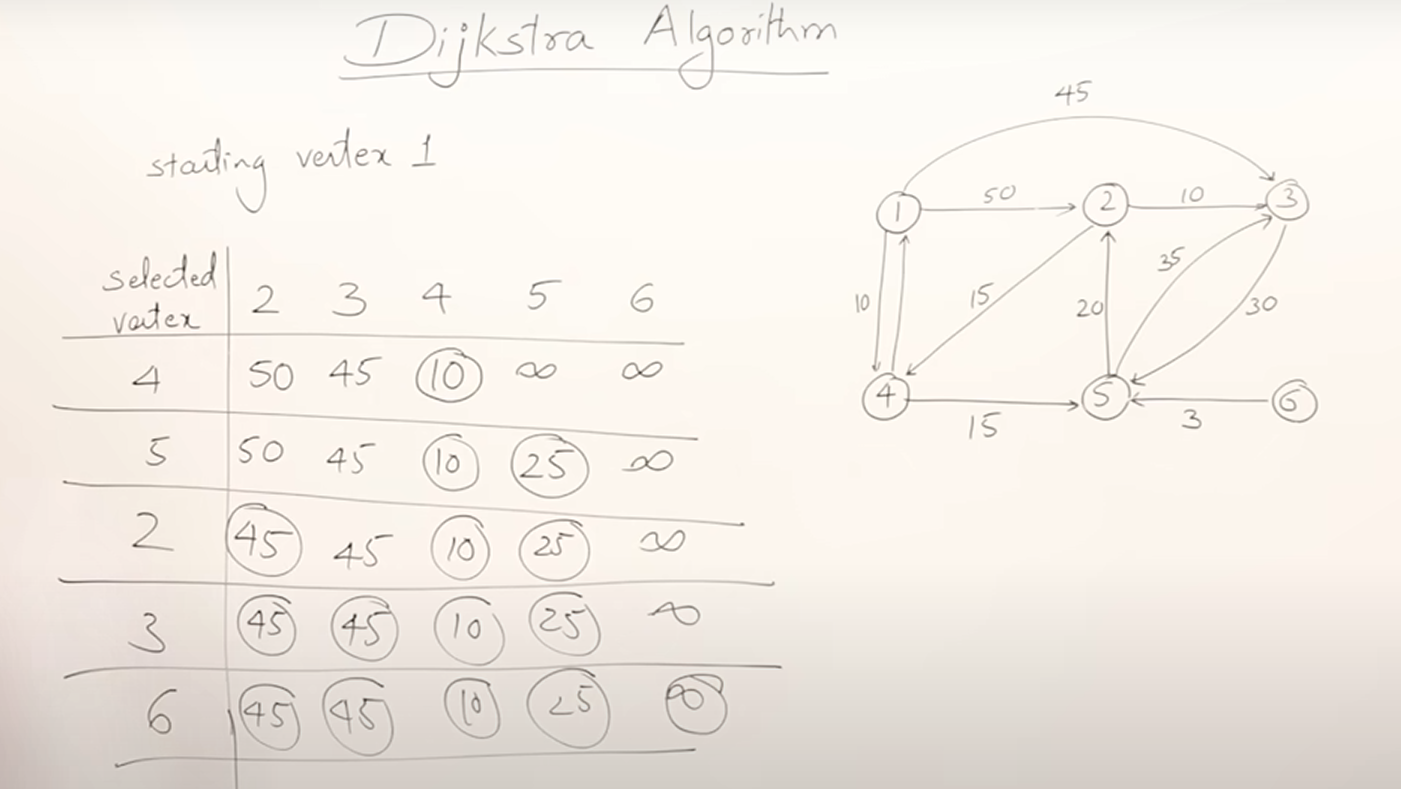 Dijkstra Algorithm
starting vertex 1
selected
vertex 2 3 4 5 6
4 50 45 10 ∞ ∞
5 50 45 10 25 ∞
2 45 45 10 25 ∞
3 45 45 10 25 ∞
6 45 45 10 25 ∞
45
1 50 2 10 3
10 15 20 35 30
4 15 5 3 6